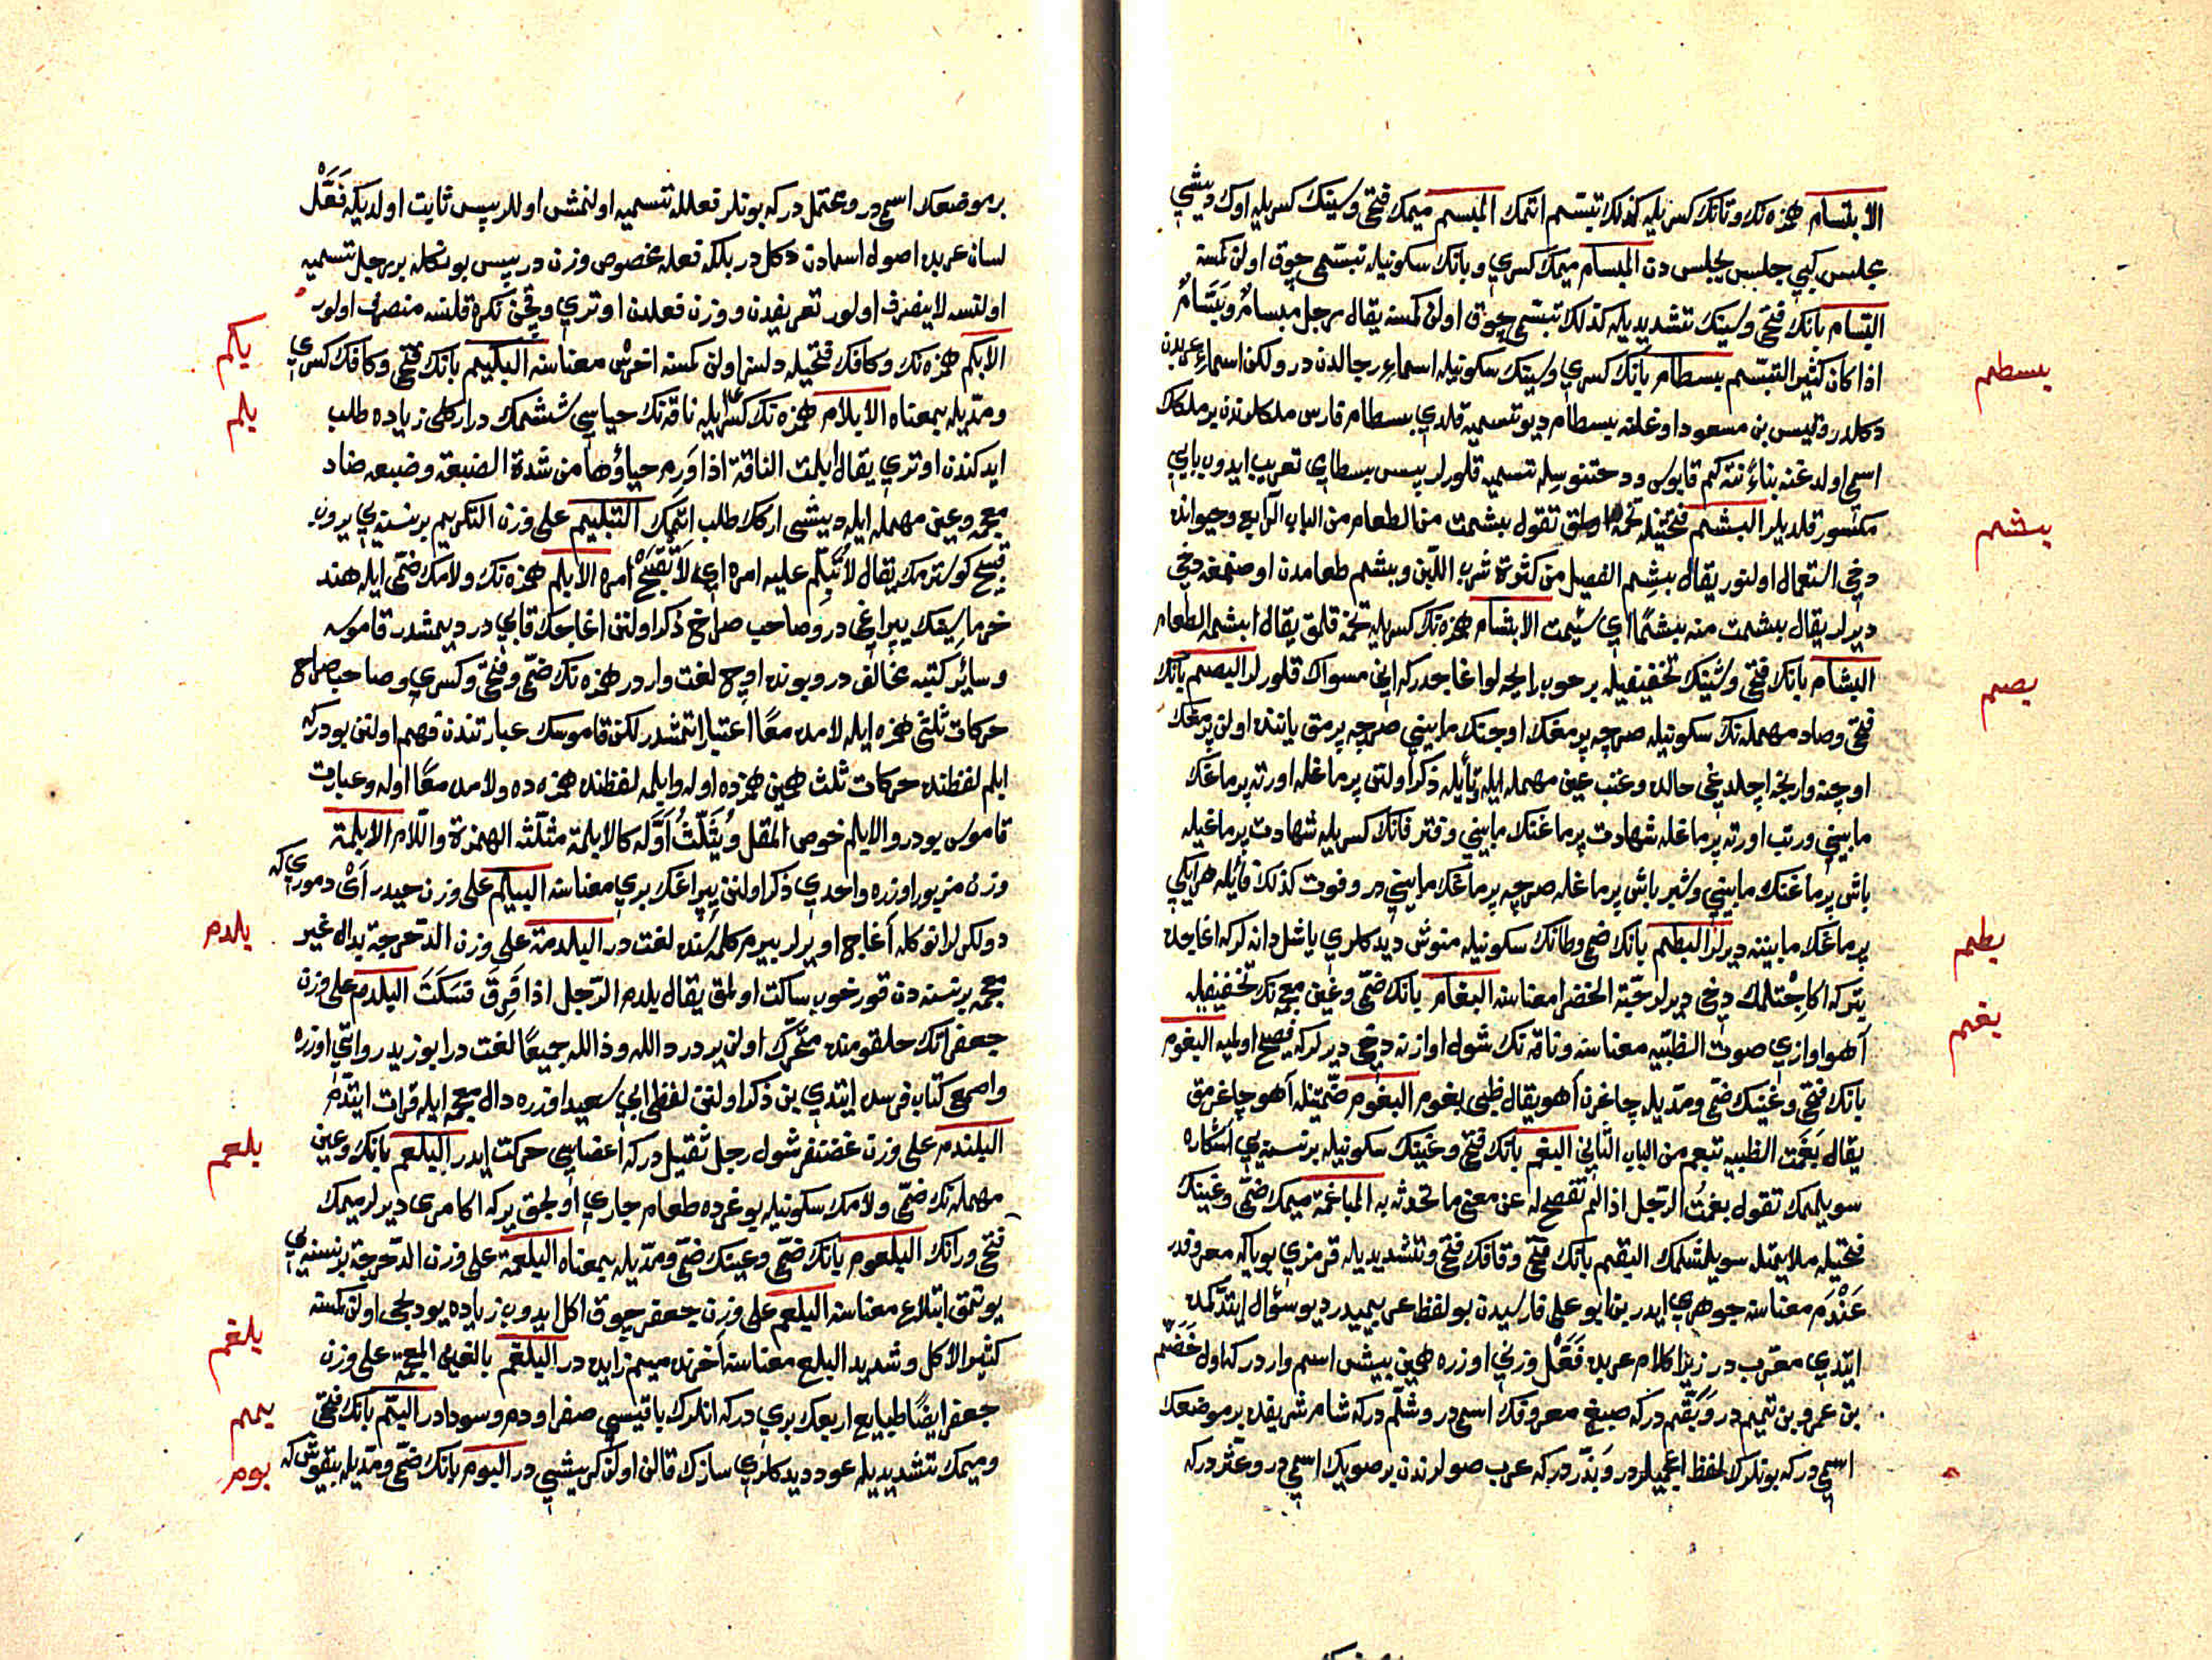 الابتسام همزه نك وتانك كسريله كذلك تبسّم اتمك المبسم ميمك فتحى وسينك كسريله اوك ديشى
مجلس كبى جلس يجلس دن المبسام ميمك كسرى وبانك سكونيله تبسّمى چوق اولن كمسنه
البسّام بانك فتحى وسينك تشديديله كذلك تبسّمى چوق اولن كمسنه يقال رجل مبسامٌ وبَسَّامٌ
اذا كان كثير التبسّم بسطام بانك كسرى وسينك سكونيله اسماء رجالدن در ولكن اسماء عربدن
دكلدر وقيس بن مسعود اوغلنه بسطام ديو تسميه قلدى بسطام فارس ملكلرندن بر ملكك
اسمى اولدغنه بناءً نته كم قابوس ودختنوس ايله تسميه قلورلر پس بسطامى تعريب ايدوب بايى
مكسور قلديلر البشم فتحتيله تخمه اولمق تقول بشمت من الطعام من الباب الرابع وحيوانده
دخى استعمال اولنور يقال بشم الفصيل من كثرة شرب اللبن وبشم طعامدن اوصنمغه دخى
ديرلر يقال بشمت منه بشمًا اى سئمت الابشام همزه نك كسريله تخمه قلمق يقال ابشمه الطعام
البشام بانك فتحى وشينك تخفيفيله بر خوب رايحه لو اغاجدركه انى مسواك قلورلر البصم بانك
فتحى وصاد مهمله نك سكونيله صرچه پرمغك اوجنك مابينى صرچه پرمق ياننده اولن پرمغك
اوجنه وارنجه اچلدغى حالده وعتب عين مهمله ايله تأيله ذكر اولنن پرماغله اورته پرماغك
مابينى ورتب اورته پرماغله شهادت پرماغنك مابينى وفتر فانك كسريله شهادت پرماغيله
باش پرماغنك مابينى وشبر باش پرماغله صرچه پرماغك مابينى در وفوت كذلك فائيله هر ايكى
پرماغك مابيننه ديرلر البطم بانك ضمى وطانك سكونيله منوش ديدكلرى ياشل دانه لركه اغاجده
بتركه اكا چتلمك دخى ديرلر حبّة الخضرا معناسنه البغام بانك ضمّى وغين معجمه نك تخفيفيله
آهو اوازى صوت الظبيه معناسنه وناقه نك شول اوازنه دخى ديرلركه فصيح اولميه البغوم
بانك فتحى وغينك ضمى ومدّيله چاغرن آهو يقال ظبى بغوم البغوم ضمّتيله آهو چاغرمق
يقال بَغَمت الظبيه تبغم من الباب الثانى البغم بانك فتحى وغينك سكونيله بر نسنه يى آشكاره
سويلمك تقول بغمت الرّجل اذا لم تفصح له عن معنى ما تحدثه به المباغمة ميمك ضمى وغينك
فتحيله ملايمتله سويلشلمك البقّم بانك فتحى وقافك فتحى وتشديديله قرمزى بوياكه معروفدر
عَنْدَم معناسنه جوهرى ايدر بن ابو على فارسيدن بو لفظ عربيميدر ديو سؤال ايتدكمده
ايتدى معرّب در زيرا كلام عربده فَعَّل وزنى اوزره همين بيش اسم واردركه اول خَضَّم
بن عمرو بن تميم در وَبَقَّم دركه صبغ معروفك اسمى در وشلّم دركه شام شريفده بر موضعك
اسمى دركه بونلركه لفظ اعجميلردر وبَذَّر دركه عرب صولرندن بر صويك اسمى در وعَثَّر دركه
بسطم
بشم
بصم
بطم
بغم
بر موضعك اسمى در ومحتمل دركه بونلر فعلله تسميه اولنمش اولالر پس ثابت اولديكه فَعَّل
لسان عربده اصول اسمادن دكل در بلكه فعله مخصوص وزن در پس بو شكله بر رجل تسميه
اولنسه لاينصرف اولور تعريفدن ووزن فعلدن اوترى وقچن نكره قلنسه منصرف اولور
الابكم همزه نك وكافك فتحيله دلسز اولن كمسنه اخرس معناسنه البكيم بانك فتحى وكافك كسرى
ومدّيله بمعناه الابلام همزه نك كسريله ناقه نك حياسى ششمك دراركك زياده طلب
ايدكندن اوترى يقال ابلمت الناقة اذا وَرِم حياؤها من شدة الضبعة وضبعه ضاد
معجمه وعين مهمله ايله ديشى اركك طلب اتمك التبليم على وزن التكريم بر نسنه يى يروب
قبيح كوسترمك يقال لا تُبَلِّم عليه امره اى لا تُقَبِّح امره الابلم همزه نك ولامك ضمّى ايله هند
خرماسينك يپراغى در وصاحب صراح ذكر اولنن اغاجك قابى در ديمشدر قاموسه
وسائر كتبه مخالف در وبونده اوچ لغت واردر همزه نك ضمّى وفتحى وكسرى وصاحب صراح
حركات ثلثى همزه ايله لامده معًا اعتبار اتمشدر لكن قاموسك عبارتندن فهم اولنن بودركه
ابلم لفظنده حركات ثلث همين همزه ده اوله وابلمه لفظنده همزه ده ولامده معًا اوله وعبارت
قاموس بودر والابلم خوص المقل ويُثَلَّثُ اَوَّله كالابلمة مثلّثة الهمزة واللّام الابلمة
وزن مزبور اوزره واحدى ذكر اولنن يپراغك برى معناسنه البيلم على وزن حيدر
دولكرلر انوكله آغاجى اويرلر بيرم كلمه سنده لغت در البلدمة على وزن الدّحرجة بدال غير
معجمه بر نسنه دن قورخوب ساكت اولمق يقال بلدم الرّجل اذا فَرِقَ فسَكَتَ البلدم على وزن
جعفر اتك حلقومنده متحرّك اولن يردر دالله وذالله جميعًا لغت در ابو زيد روايتى اوزره
واصمعى كتاب فرسده ايتدى بن ذكر اولنن لفظى ابى سعيد اوزره دال معجمه ايله قرات ايتدم
البلندم على وزن غضنفر شول رجل ثقيل دركه اعضاسى حركت ايدر البلعم بانك وعين
مهمله نك ضمّى ولامك سكونيله بوغرده طعام جارى اولجق يركه اكا مرى ديرلر ميمك
فتحى ورانك البلعوم بانك ضمّى وعينك ضمّى ومدّيله بمعناه البلعمة على وزن الدّحرجة بر نسنه يى
يوتمق ابتلاع معناسنه البلعم على وزن جعفر چوق اكل ايدوب زياده يوديجى اولن كمسنه
كثير الاكل وشديد البلع معناسنه آخرنده ميم زايده در البلغم بالغين المعجمة على وزن
جعفر ايضًا طبايع اربعك برى دركه انلرك باقيسى صفرا ودم وسودادر البمّ بانك فتحى
وميمك تشديديله عود ديدكلرى سازك قالن اولن كريشى در البوم بانك ضمّى ومدّيله بيقوش كه
بكم
بلم
بلدم
بلعم
بلغم
بمم
بوم